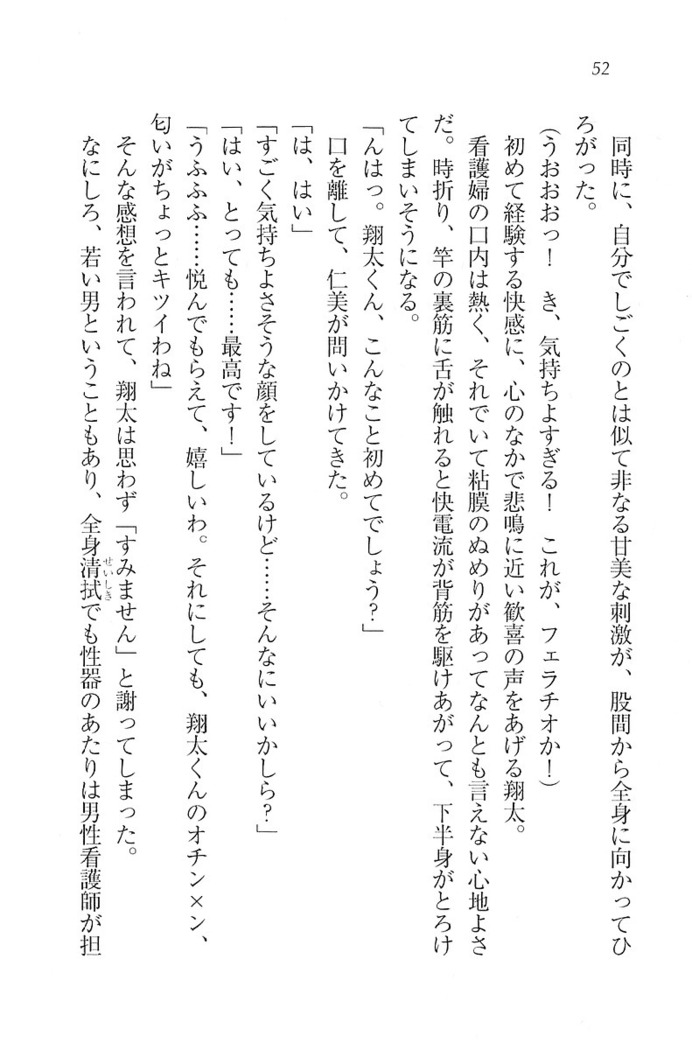 52
同時に、自分でしごくのとは似て非なる甘美な刺激が、股間から全身に向かってひ
ろがった。
(うおおおっ！　き、気持ちよすぎる！　これが、フェラチオか！)
初めて経験する快感に、心のなかで悲鳴に近い歓喜の声をあげる翔太。
看護婦の口内は熱く、それでいて粘膜のぬめりがあってなんとも言えない心地よさ
だ。時折り、竿の裏筋に舌が触れると快電流が背筋を駆けあがって、下半身がとろけ
てしまいそうになる。
「んはっ。翔太くん、こんなこと初めてでしょう？」
口を離して、仁美が問いかけてきた。
「は、はい」
「すごく気持ちよさそうな顔をしているけど……そんなにいいかしら？」
「はい、とっても……最高です！」
「うふふふ……悦んでもらえて、嬉しいわ。それにしても、翔太くんのオチン×ン、
匂いがちょっとキツイわね」
そんな感想を言われて、翔太は思わず「すみません」と謝ってしまった。
なにしろ、若い男ということもあり、全身清拭(せいしき)でも性器のあたりは男性看護師が担